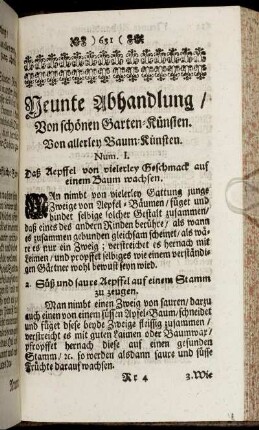 ) 631 (
Neunte Abhandlung /
Von schönen Garten-Künsten.
Von allerley Baum-Künsten.
Num. I.
Daß Aepffel von vielerley Geschmack auf
einem Baum wachsen.
MAn nimbt von vielerley Gattung junge
Zweige von Aepfel-Bäumen / füget und
bindet selbige solcher Gestalt zusammen /
daß eines des andern Rinden berühre / als wann
es zusammen gebunden gleichsam scheint / als wä-
re es nur ein Zweig ; verstreichet es hernach mit
Leimen / und propffet selbiges wie einem verständi-
gen Gärtner wohl bewust seyn wird.
2. Süß und saure Aepffel auf einem Stamm
zu zeugen.
Man nimbt einen Zweig von sauren / darzu
auch einen von einem süssen Apfel-Baum / schneidet
und füget diese beyde Zweige fleissig zusammen /
verstreicht es mit guten Laimen oder Baumwax /
propffet hernach diese auf einen gesunden
Stamm / &c. so werden alsdann saure und süsse
Früchte darauf wachsen.
Rr 4 3. Wie